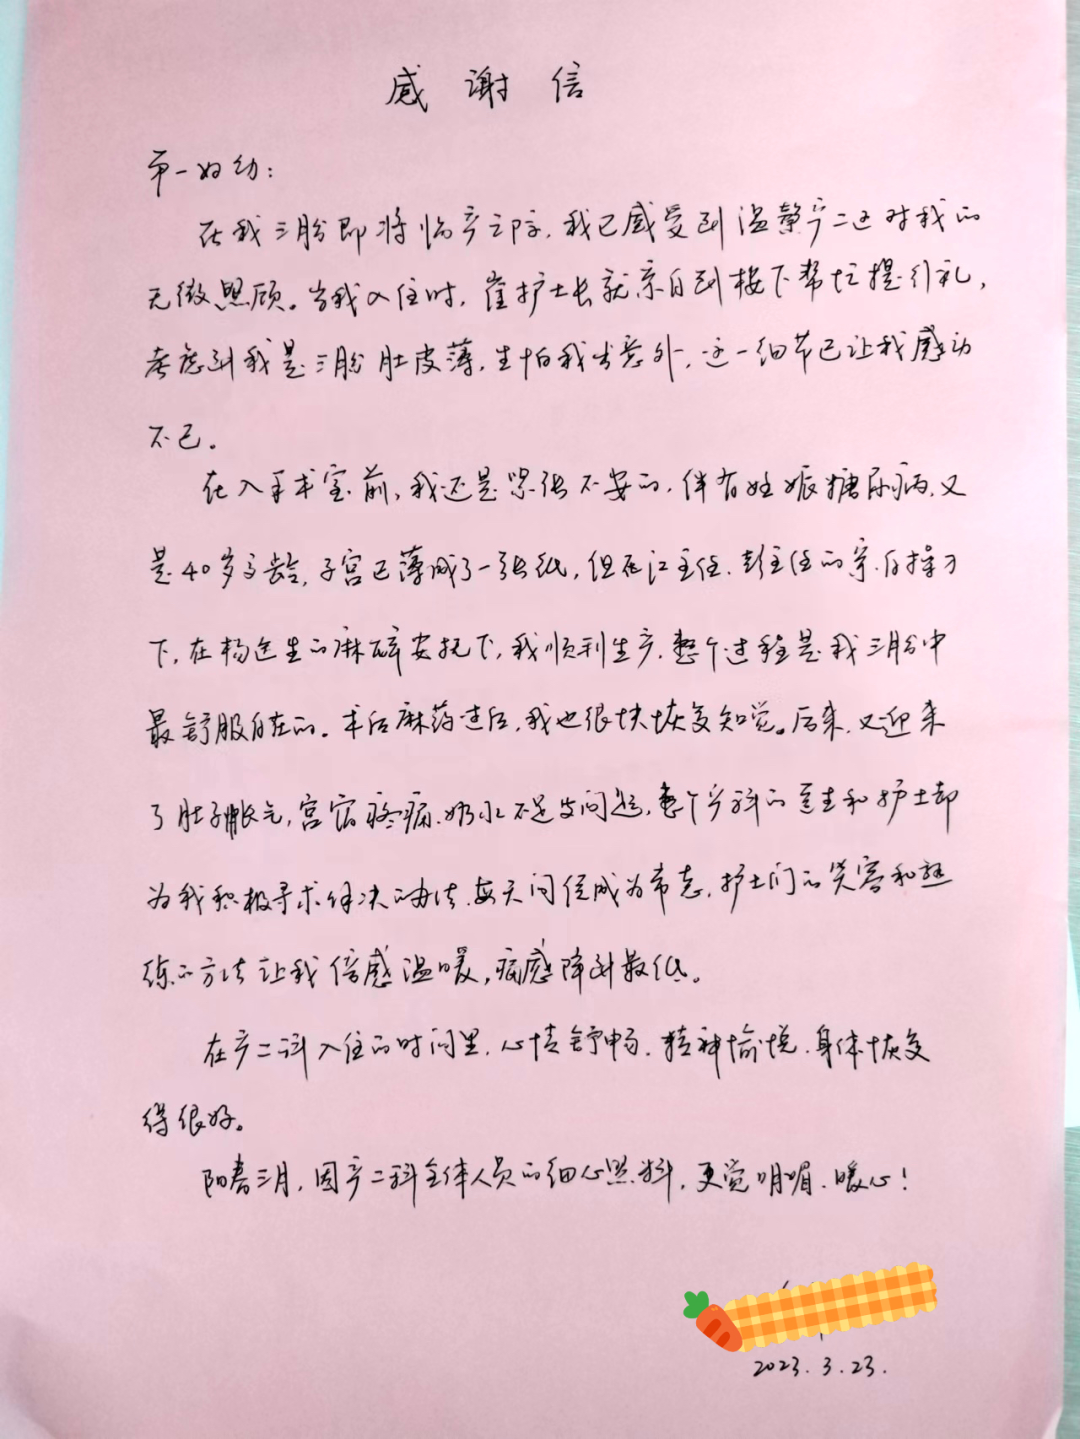 感谢信
市一妇幼：
在我三胎即将临产之际，我已感受到温馨产二区对我的
无微照顾。当我入住时，崔护士长就亲自到楼下帮忙提行礼，
考虑到我是三胎肚皮薄，生怕我出意外，这一细节已让我感动
不已。
在入手术室前，我还是紧张不安的，伴有妊娠糖尿病，又
是40岁高龄，子宫已薄成了一张纸，但在江主任、彭主任的亲自操刀
下，在杨医生的麻醉安抚下，我顺利生产，整个过程是我三胎中
最舒服自在的。术后麻药过后，我也很快恢复知觉。后来，又迎来
了肚子胀气，宫缩疼痛、奶水不足等问题，整个产科的医生和护士都
为我积极寻求解决的办法，每天问候成为常态，护士们的笑容和熟
练的方法让我倍感温暖，痛感降到最低。
在产二科入住的时间里，心情舒畅，精神愉悦，身体恢复
得很好。
阳春三月，因产二科全体人员的细心照料，更觉明媚、暖心！
2023.3.23.